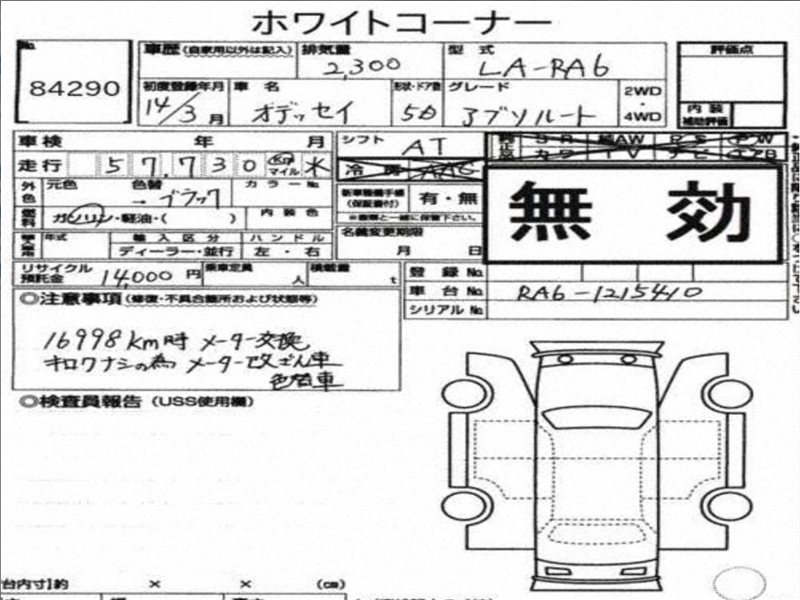 ホワイトコーナー
No. 84290
車歴 (自家用以外は記入) 排気量 2,300 型式 LA-RA6 評価点
初度登録年月 14/3月 車名 オデッセイ 形状・ドア数 5D グレード アブソルート 2WD・4WD 内装補助評価
車検 年 月 シフト AT
走行 57,730 Km マイル 冷房 AAC
外色 元色 色替 → ブラック カラーNo. 新車整備手帳 (保証書付) 有・無
無効
燃料 ガソリン・軽油・( ) 内装色
年式 輸入区分 ディーラー・並行 ハンドル 左・右 名義変更期限 月 日
リサイクル預託金 14,000円 乗車定員 人 積載量 t 登録No.
車台No. RA6-1215410
シリアルNo.
◎注意事項 (修復・不具合箇所および状態等)
16998Km時 メーター交換
キロクナシの為 メーター改ざん車
色替車
◎検査員報告 (USS使用欄)
台内寸法約 × × (cm)